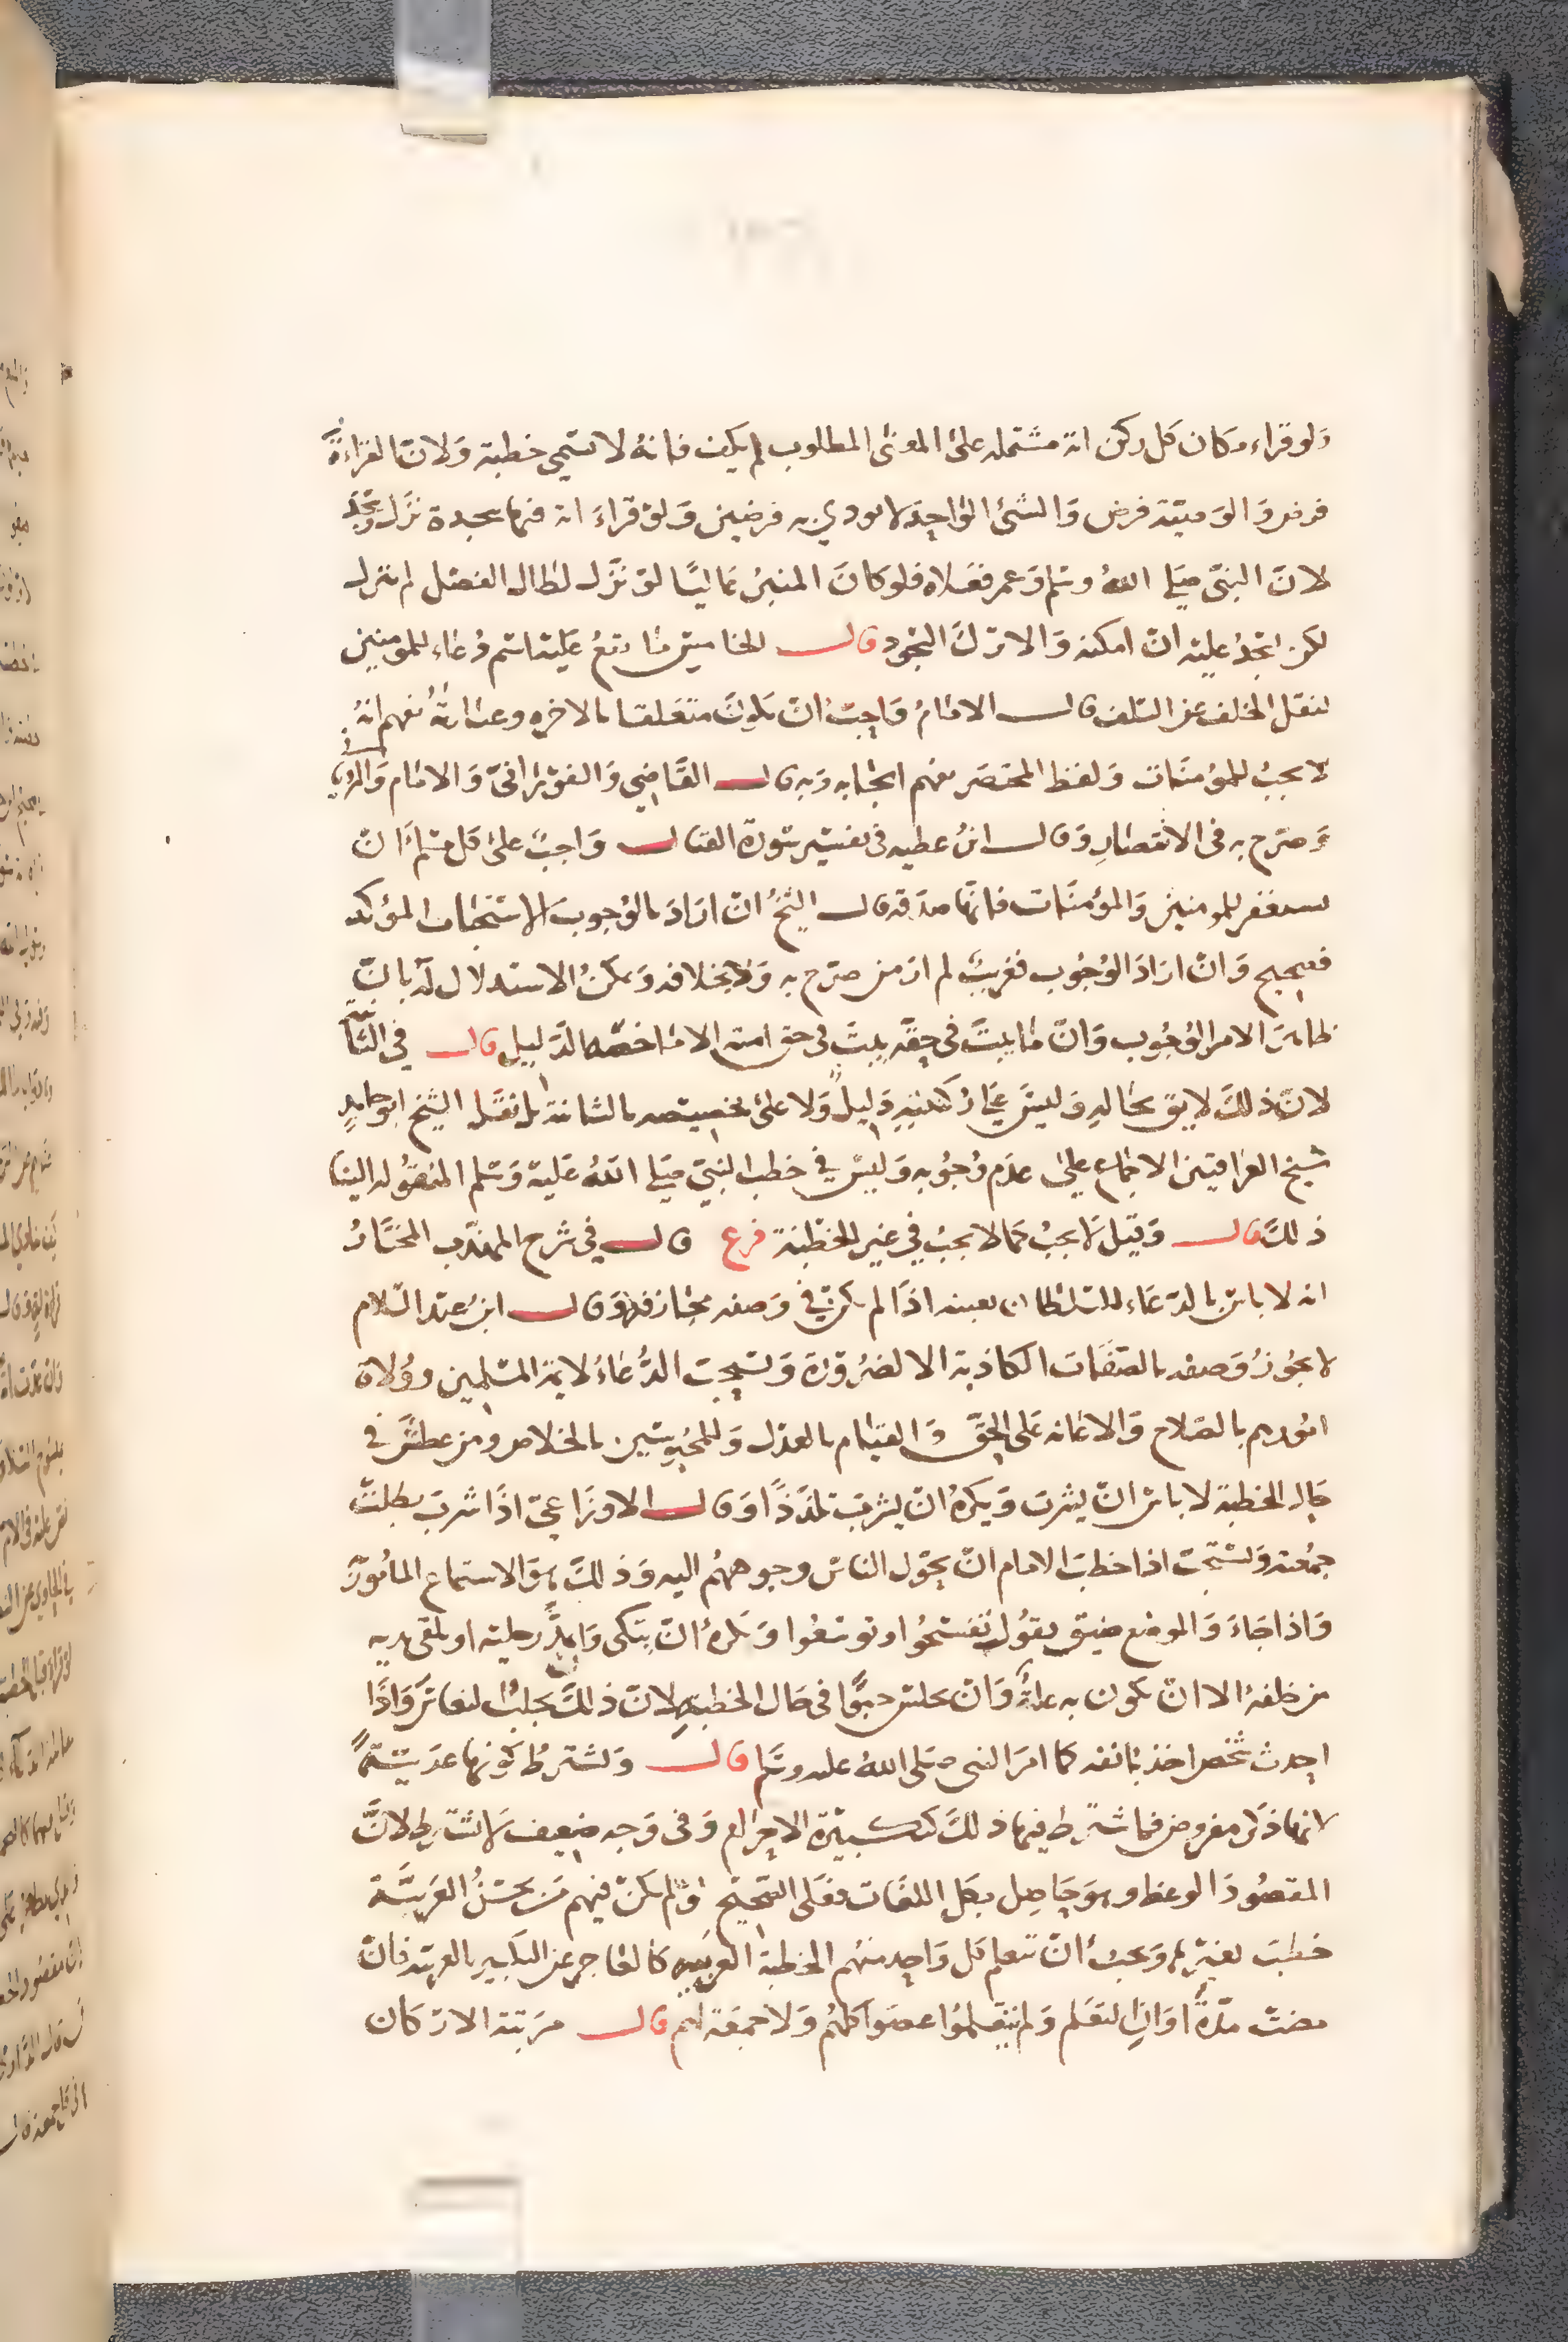 ولو قراء مكان كل ركن اية مشتملة على المعنى المطلوب لم يكف فانه لا تسمى خطبة ولان القراءة
فرض والوصية فرض والشئ الواحد لا يودي به فرضين ولو قراء اية فيها سجدة نزل وسجد
لان النبي صلى الله وسلم وعمر فعلاه فلو كان المنبر عاليا لو نزل لطال الفصل لم ينزل
لكن يسجد عليه ان امكنه والا ترك السجود قال الخامس ما يقع عليه اسم دعاء للمومنين
لنقل الخلف عن السلف قال الامام واجب ان يكون متعلقا بالاخرة وعبارته تفهم انه
لا يجب للمؤمنات ولفظ المختصر يفهم ايجابه وبه قال القاضي والفوراني والامام والغزالي
وصرح به في الانتصار وقال ابن عطيه في تفسير سورة القتال واجب على كل مسلم ان
يستغفر للمومنين والمؤمنات فانها صدقه قال الشيخ ان اراد بالوجوب الاستحباب المؤكد
فصحيح وان اراد الوجوب فغريب لم ار من صرح به ولا بخلافه ويمكن الاستدلال له بان
ظاهر الامر الوجوب وان ما يثبت في حقه يثبت في حق امته الا ما خصه الدليل قال في الثانية
لان ذلك لايق بحاله وليس على ركنيته دليل ولا على تخصيصه بالثانية بل نقل الشيخ ابو حامد
شيخ العراقيين الاجماع على عدم وجوبه وليس في خطب النبي صلى الله عليه وسلم المنقولة الينا
ذلك قال وقيل لا يجب كما لا يجب في غير الخطبة فرع قال في شرح المهذب المختار
انه لا باس بالدعاء للسلطان بعينه اذا لم يكن في وصفه مجازفة وقال ابن عبد السلام
لا يجوز وصفه بالصفات الكاذبة الا لضرورة وتستحب الدعاء لايمة المسلمين وولاة
امورهم بالصلاح والاعانه على الحق والقيام بالعدل وللمحبوسين بالخلاص ومن عطش في
حال الخطبة لا باس ان يشرب ويكره ان يشرب تلذذا وقال الاوزاعي اذا شرب بطلت
جمعته وتستحب اذا خطب الامام ان يحول الناس وجوههم اليه وذلك هو الاستماع المامور
واذا جاء والموضع ضيق يقول تفسحوا وتوسعوا ويكره ان يتكي ويمد رجليه او يلقي يديه
من خلفه الا ان تكون به علة وان يجلس حبوا في حال الخطبة لان ذلك يجلب النعاس واذا
احدث شخص اخذ بانفه كما امر النبي صلى الله عليه وسلم قال ويشترط كونها عربية
لانها ذكر مفروض فاشترط فيها ذلك كتكبيرة الاحرام وفى وجه ضعيف لا يشترط لان
المقصود الوعظ وهو حاصل بكل اللغات فعلى الصحيح لو لم يكن فيهم من يحسن العربية
خطب بغيرها ويجب ان يتعلم كل واحد منهم الخطبة العربية كالعاجز عن التكبير بالعربية فان
مضت مدة اوان التعلم ولم يتعلموا عصوا كلهم ولا جمعة لهم قال مرتبة الاركان